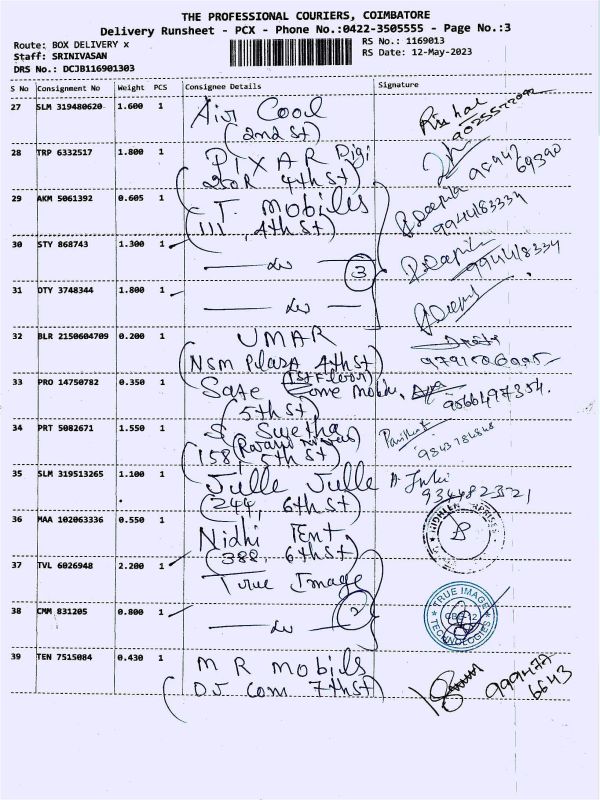 THE PROFESSIONAL COURIERS, COIMBATORE
Delivery Runsheet - PCX - Phone No.:0422-3505555 - Page No.:3
Route: BOX DELIVERY x
RS No.: 1169013
Staff: SRINIVASAN
RS Date: 12-May-2023
DRS No.: DCJB116901303
S No Consignment No Weight PCS Consignee Details Signature
27 SLM 319480620 1.600 1 Air Cool
(2nd St)
28 TRP 6332517 1.800 1 PIXAR Digi
250R 4th St)
29 AKM 5061392 0.605 1 T. Mobiles
111, 4th St)
9944183334
30 STY 868743 1.300 1 do 3
9944183334
31 DTY 3748344 1.800 1 do
32 BLR 2150604709 0.200 1 UMAR
(NSM Plaza 4th St)
33 PRO 14750782 0.350 1 (1st Floor)
(5th St)
34 PRT 5082671 1.550 1 S. Swetha
158, 5th St)
9843784848
35 SLM 319513265 1.100 1 Julle Julle
(244, 6th St)
36 MAA 102063336 0.550 1 Nidhi Tent
(388, 6th St)
37 TVL 6026948 2.200 1 True Image
38 CMM 831205 0.800 1 do 2
TRUE IMAGE
TECHNOLOGIES
39 TEN 7515084 0.430 1 M R Mobils
DJ Com 7th St)
999477
6643